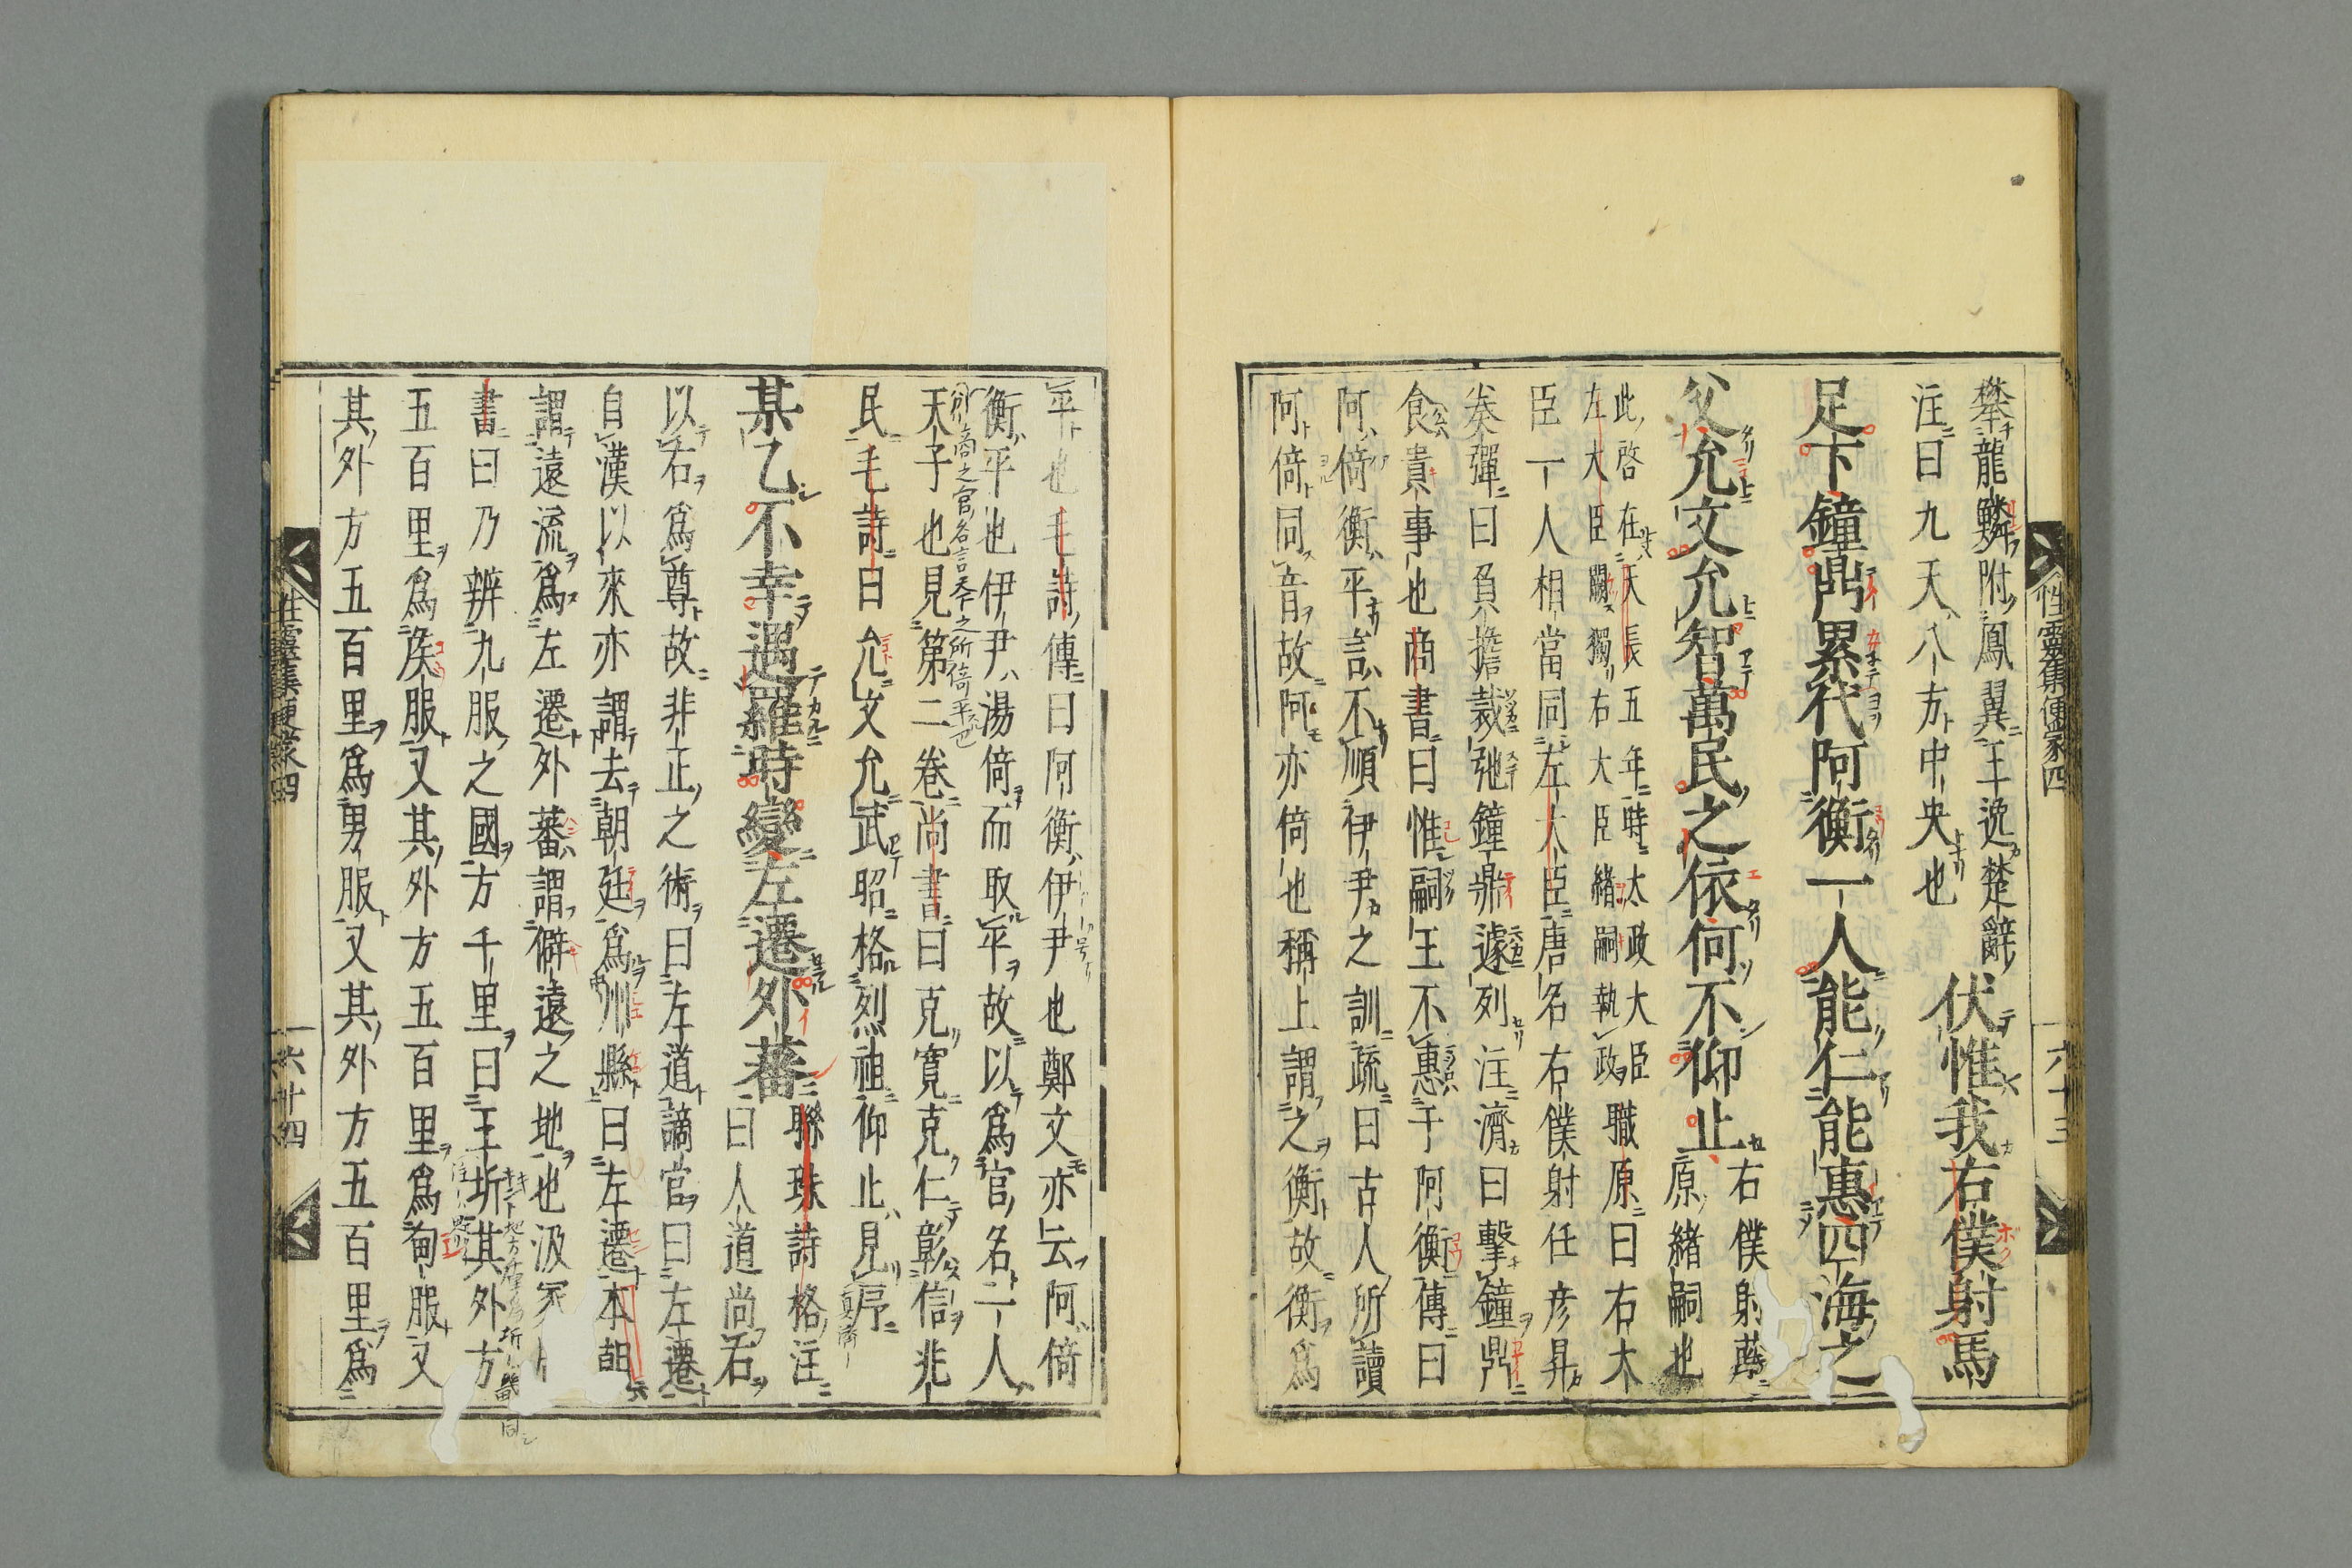 攀龍鱗附鳳翼王逸楚辭
注曰九天八方中央也
伏惟我右僕射馬
足下鐘鼎累代阿衡一人能仁能惠四海之
父允文允智萬民之依何不仰止
右僕射蕣
原緒嗣也
此啓在天長五年時太政大臣
左大臣闕獨右大臣緒嗣執政職原曰右大
臣一人相當同左大臣唐名右僕射任彦昇
奏彈曰負擔裁弛鐘鼎遽列注濟曰擊鐘鼎
食貴事也商書曰惟嗣王不惠于阿衡傳曰
阿倚衡平言不順伊尹之訓疏曰古人所讀
阿倚同音故阿亦倚也稱上謂之衡故衡爲
性靈集便蒙四
六十三
平也毛詩傳曰阿衡伊尹也鄭文亦云阿倚
衡平也伊尹湯倚而取平故以爲官名一人
天子也見第二卷尚書曰克寛克仁彰信兆
民毛詩曰允文允武昭格烈祖仰止見序
某乙不幸遇羅時變左遷外蕃
聯珠詩格注
曰人道尚右
以右爲尊故非正之術曰左道謫官曰左遷
自漢以來亦謂去朝廷爲州縣曰左遷本朝
謂遠流爲左遷外蕃謂僻遠之地也汲冢
書曰乃辨九服之國方千里曰王圻其外方
五百里爲侯服又其外方五百里爲甸服又
其外方五百里爲男服又其外方五百里爲
性靈集便蒙四
六十四